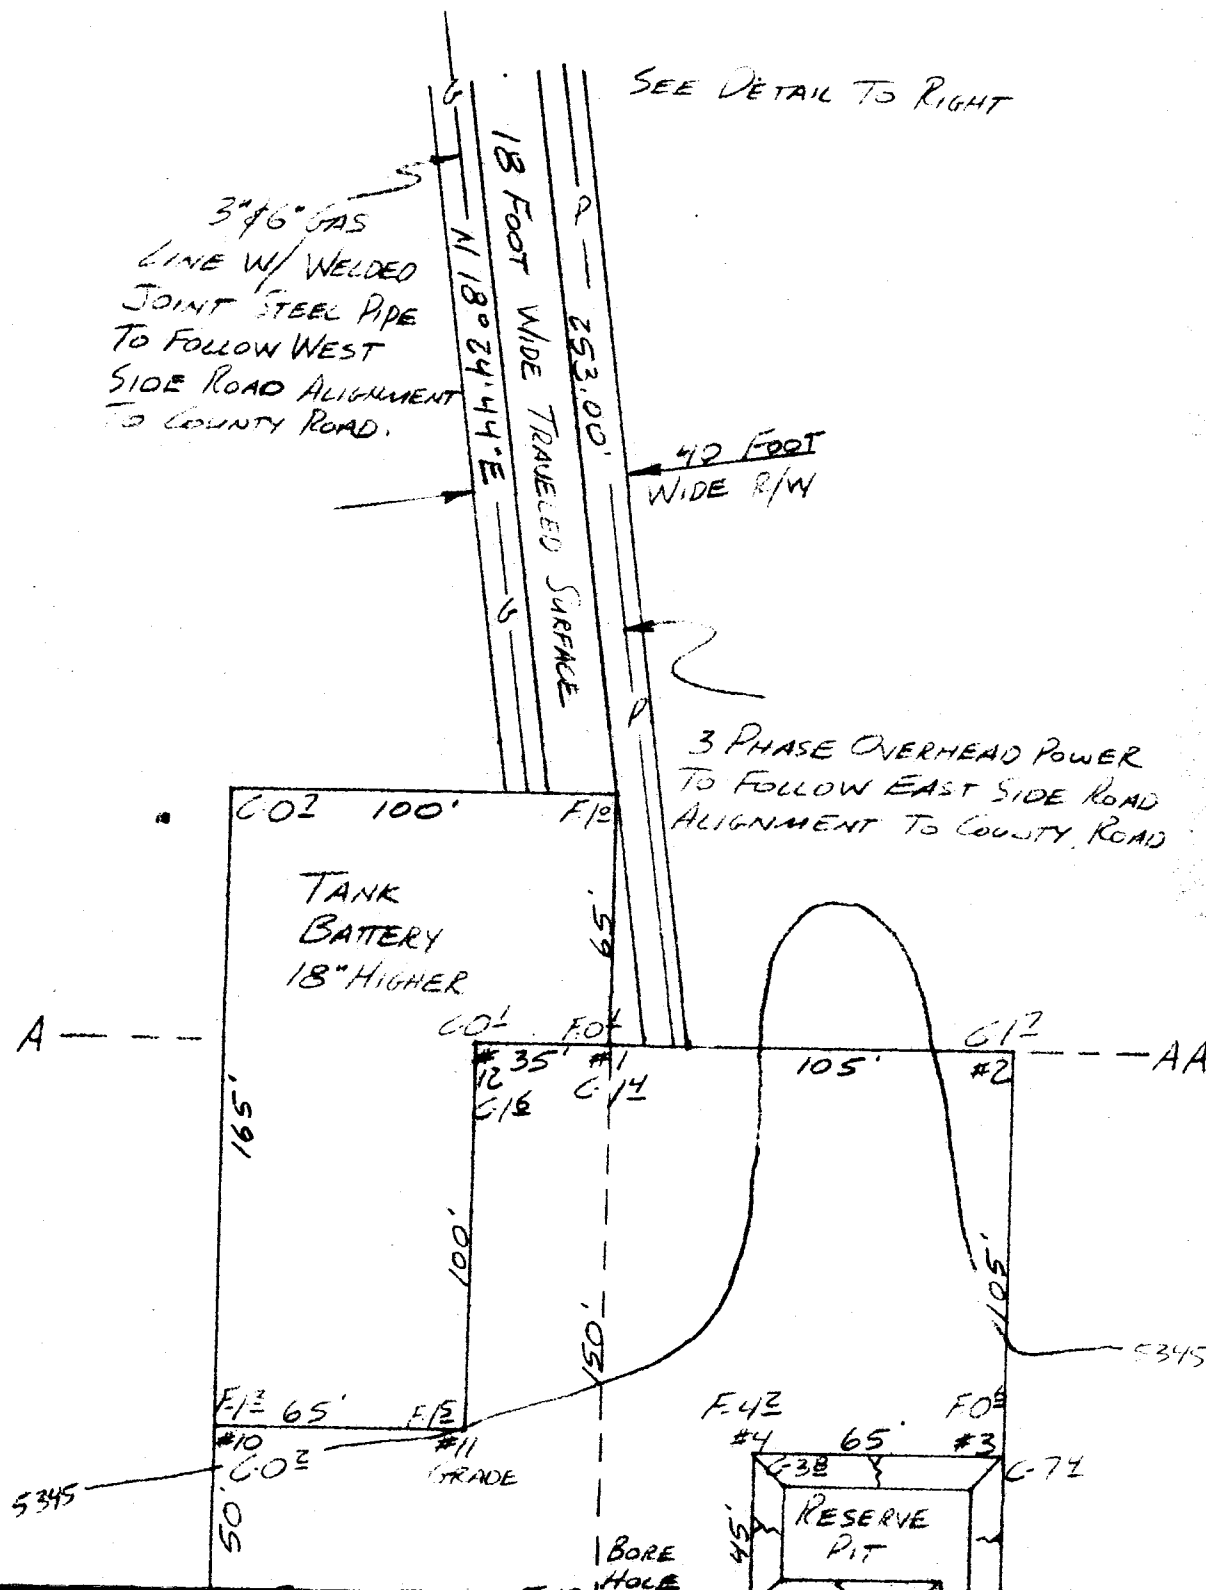 SEE DETAIL TO RIGHT
G
3" & 6" GAS
LINE W/ WELDED
JOINT STEEL PIPE
TO FOLLOW WEST
SIDE ROAD ALIGNMENT
TO COUNTY ROAD.
N 18° 24' 44" E
G
18 FOOT WIDE TRAVELED SURFACE
P
253.00'
P
40 FOOT
WIDE R/W
3 PHASE OVERHEAD POWER
TO FOLLOW EAST SIDE ROAD
ALIGNMENT TO COUNTY ROAD
100'
TANK
BATTERY
18" HIGHER
65'
A
AA
#12
35'
#1
105'
#2
165'
100'
150'
105'
5345
65'
#10
#11
GRADE
5345
50'
#4
65'
#3
45'
RESERVE
PIT
BORE
HOLE